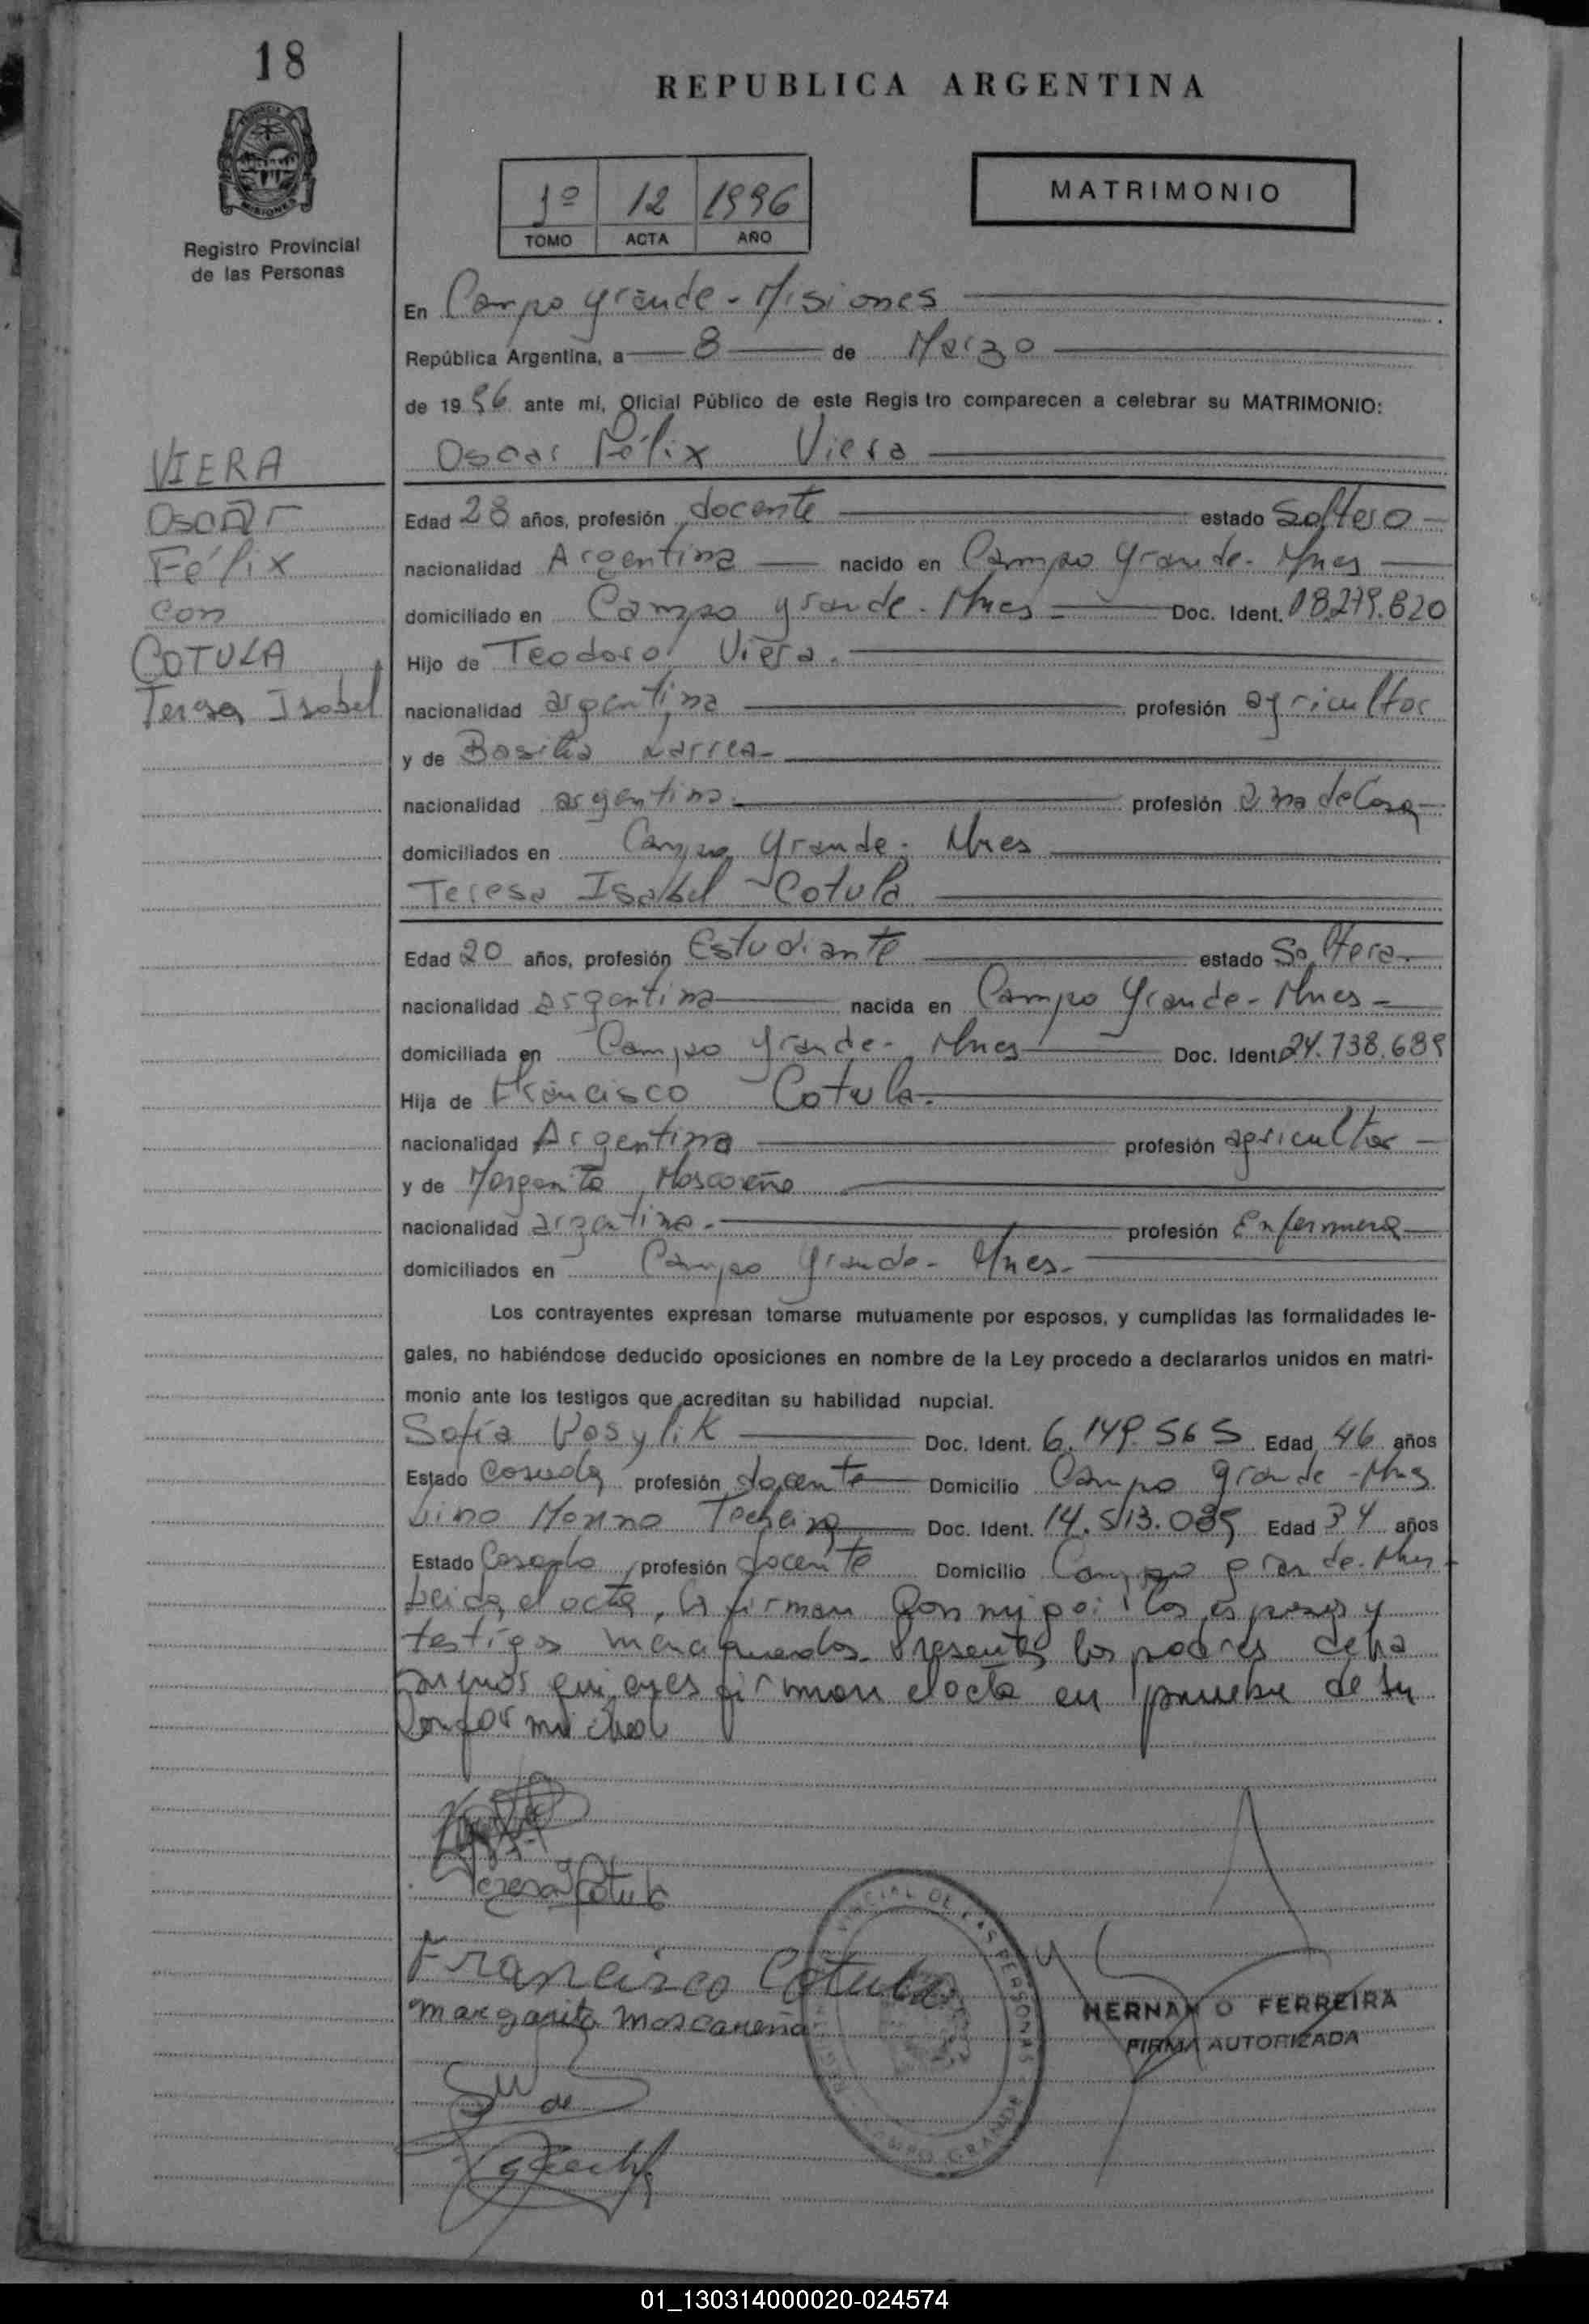 18
REPUBLICA ARGENTINA
MISIONES
Registro Provincial
de las Personas
1º 12 1996
TOMO ACTA AÑO
MATRIMONIO
En Campo Grande - Misiones
República Argentina, a 8 de Marzo
de 1996 ante mí, Oficial Público de este Regis tro comparecen a celebrar su MATRIMONIO:
Oscar Félix Viera
VIERA
Oscar
Félix
con
COTULA
Teresa Isabel
Edad 28 años, profesión docente estado Soltero
nacionalidad Argentina nacido en Campo Grande - Mnes
domiciliado en Campo Grande - Mnes Doc. Ident. 18.279.820
Hijo de Teodoro Viera.
nacionalidad argentina profesión agricultor
y de Basilia Larrea
nacionalidad argentina profesión ama de Casa
domiciliados en Campo Grande - Mnes
Teresa Isabel Cotula
Edad 20 años, profesión Estudiante estado Soltera.
nacionalidad argentina nacida en Campo Grande - Mnes -
domiciliada en Campo Grande - Mnes Doc. Ident. 24.738.689
Hija de Francisco Cotula.
nacionalidad Argentina profesión agricultor
y de Margarita Moscareño
nacionalidad argentina. profesión Enfermera
domiciliados en Campo Grande - Mnes.
Los contrayentes expresan tomarse mutuamente por esposos, y cumplidas las formalidades le-
gales, no habiéndose deducido oposiciones en nombre de la Ley procedo a declararlos unidos en matri-
monio ante los testigos que acreditan su habilidad nupcial.
Sofía Kosylik Doc. Ident. 6.149.565 Edad 46 años
Estado Casada profesión docente Domicilio Campo Grande - Mnes
Lino Doc. Ident. 14.513.035 Edad 34 años
Estado Casado profesión docente Domicilio Campo Grande - Mnes
Leida el acta, la firman Conmigo los esposos y
testigos mencionados. Presentes los padres de la
quienes firman el acta en prueba de su
Conformidad
Teresa I Cotula
Francisco Cotula
margarita moscareña
PROVINCIAL DE LAS PERSONAS
CAMPO GRANDE
HERNAN O FERREIRA
FIRMA AUTORIZADA
01_130314000020-024574